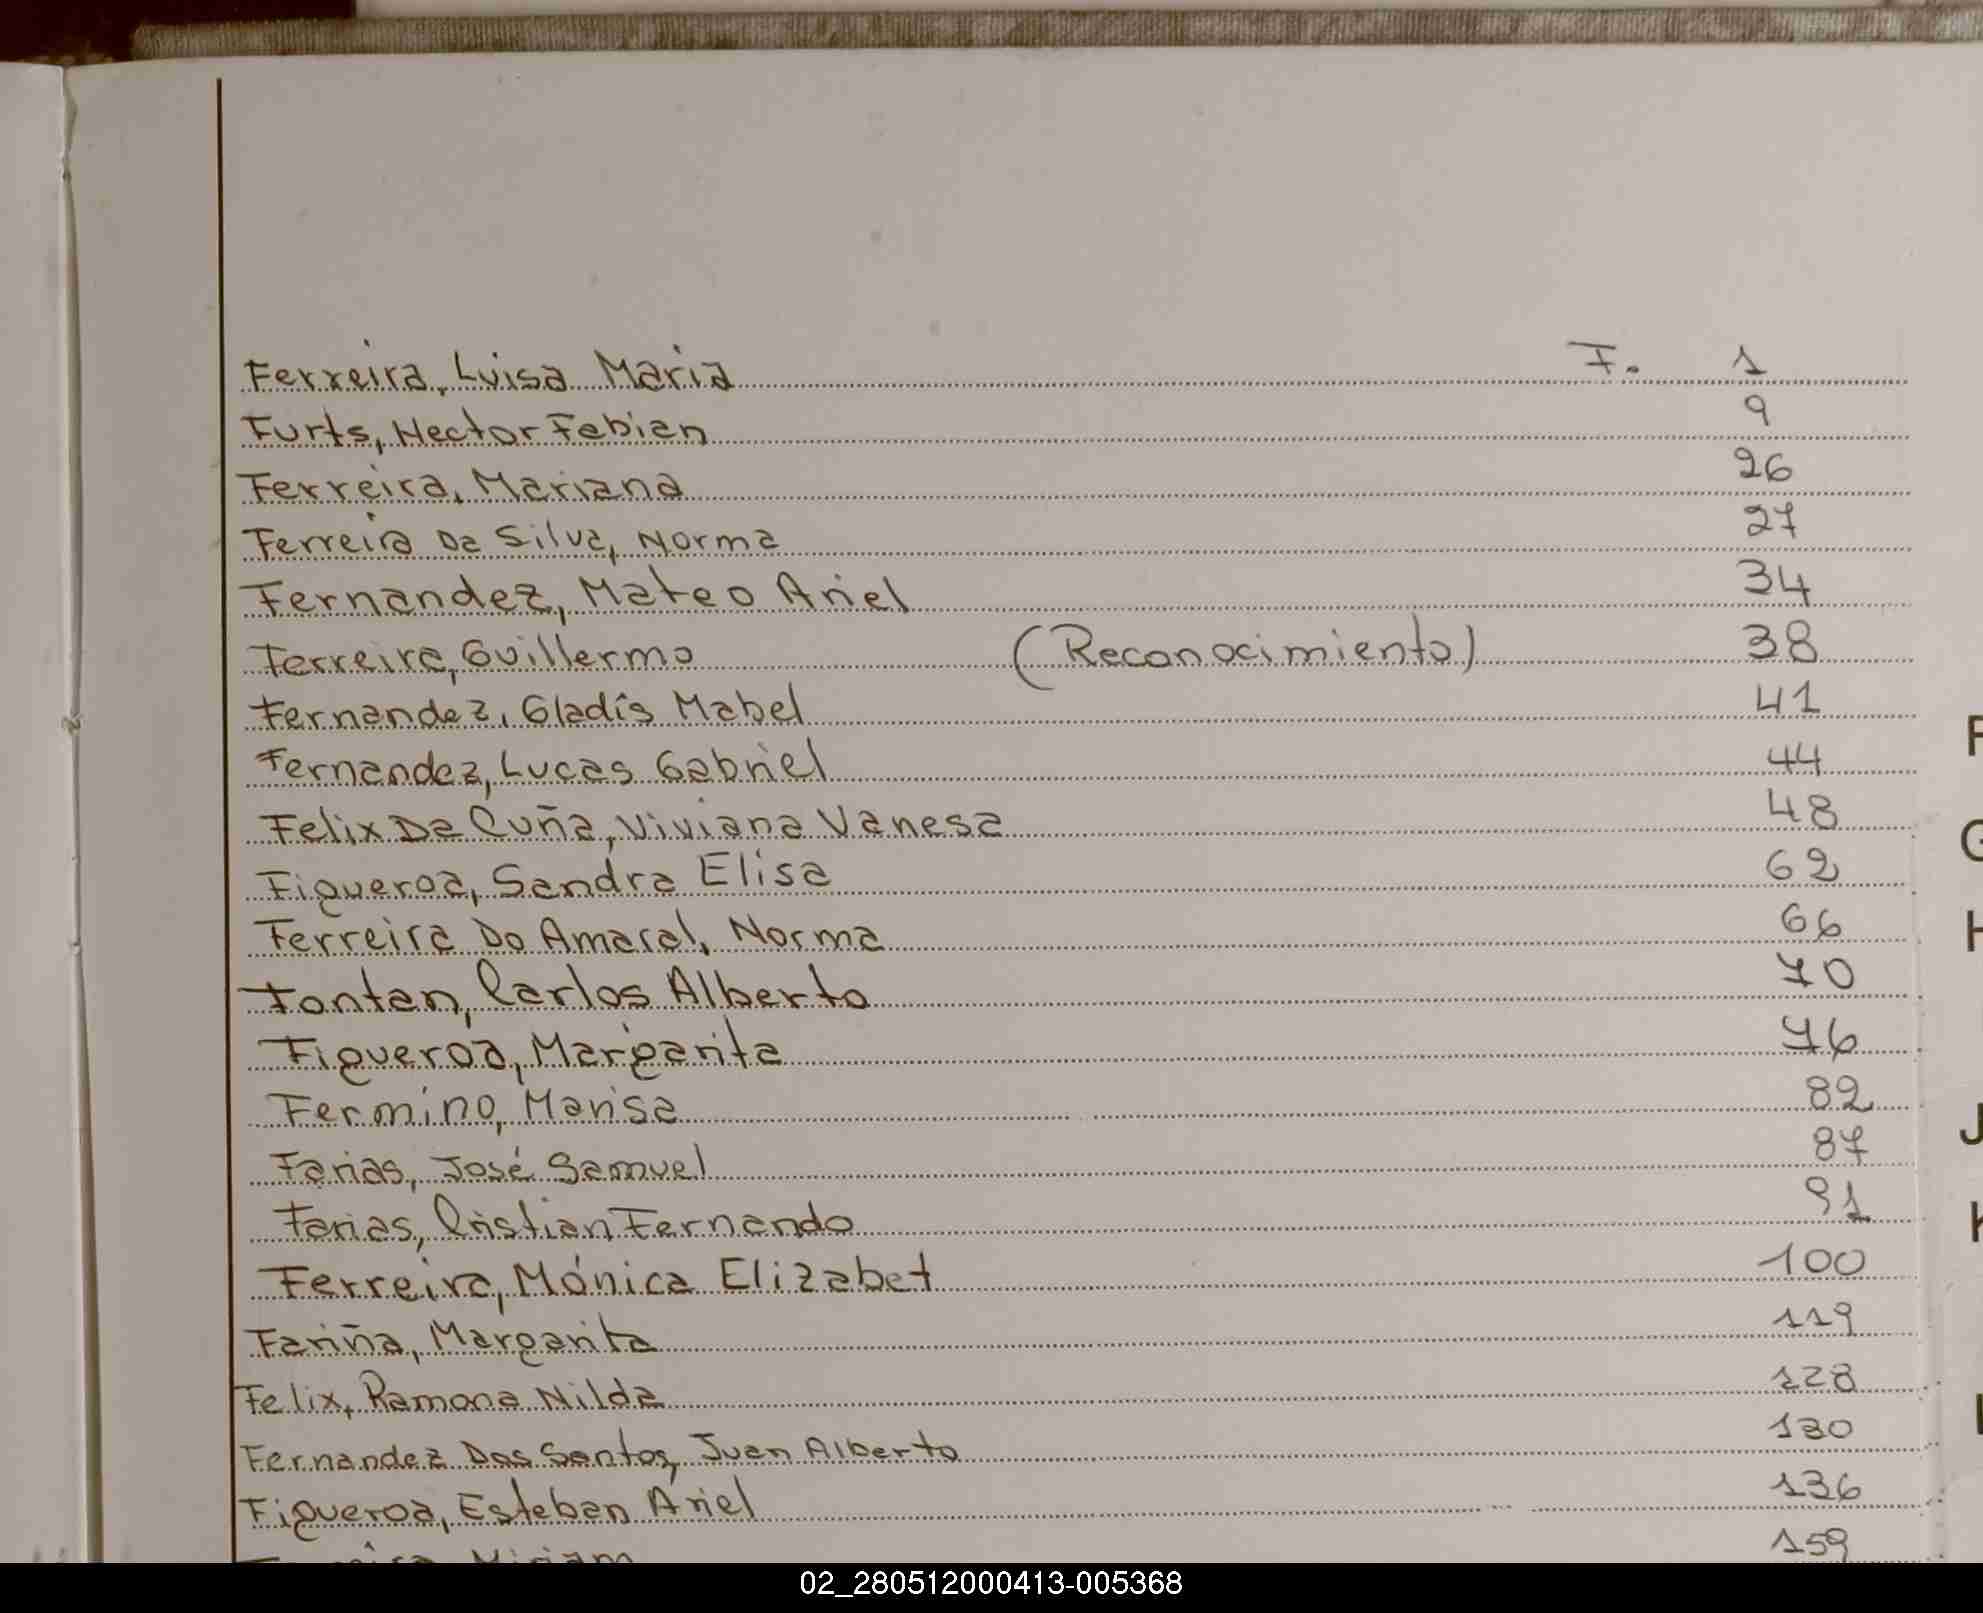 Ferreira, Luisa Maria F. 1
Furts, Hector Fabian 9
Ferreira, Mariana 26
Ferreira Da Silva, Norma 27
Fernandez, Mateo Ariel 34
Ferreira, Guillermo (Reconocimiento) 38
Fernandez, Gladis Mabel 41
Fernandez, Lucas Gabriel 44
Felix Da Cuña, Viviana Vanesa 48
Figueroa, Sandra Elisa 62
Ferreira Do Amaral, Norma 66
Fontan, Carlos Alberto 70
Figueroa, Margarita 76
Fermino, Marisa 82
Farias, José Samuel 87
Farias, Cristian Fernando 91
Ferreira, Mónica Elizabet 100
Fariña, Margarita 119
Felix, Ramona Nilda 128
Fernandez Dos Santos, Juan Alberto 130
Figueroa, Esteban Ariel 136
Miriam 159
F
G
H
J
K
L
02_280512000413-005368